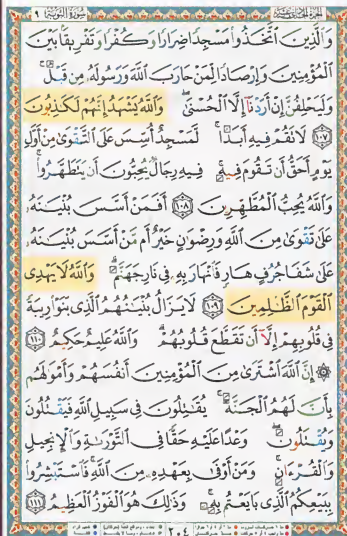 الجزء الحادي عشر سورة التوبة ٩
وَٱلَّذِينَ ٱتَّخَذُوا۟ مَسْجِدًا ضِرَارًا وَكُفْرًا وَتَفْرِيقًۢا بَيْنَ
ٱلْمُؤْمِنِينَ وَإِرْصَادًا لِّمَنْ حَارَبَ ٱللَّهَ وَرَسُولَهُۥ مِن قَبْلُ ۚ
وَلَيَحْلِفُنَّ إِنْ أَرَدْنَآ إِلَّا ٱلْحُسْنَىٰ ۖ وَٱللَّهُ يَشْهَدُ إِنَّهُمْ لَكَـٰذِبُونَ
﴿١٠٧﴾ لَا تَقُمْ فِيهِ أَبَدًا ۚ لَّمَسْجِدٌ أُسِّسَ عَلَى ٱلتَّقْوَىٰ مِنْ أَوَّلِ
يَوْمٍ أَحَقُّ أَن تَقُومَ فِيهِ ۚ فِيهِ رِجَالٌ يُحِبُّونَ أَن يَتَطَهَّرُوا۟ ۚ
وَٱللَّهُ يُحِبُّ ٱلْمُطَّهِّرِينَ ﴿١٠٨﴾ أَفَمَنْ أَسَّسَ بُنْيَـٰنَهُۥ
عَلَىٰ تَقْوَىٰ مِنَ ٱللَّهِ وَرِضْوَٰنٍ خَيْرٌ أَم مَّنْ أَسَّسَ بُنْيَـٰنَهُۥ
عَلَىٰ شَفَا جُرُفٍ هَارٍ فَٱنْهَارَ بِهِۦ فِى نَارِ جَهَنَّمَ ۗ وَٱللَّهُ لَا يَهْدِى
ٱلْقَوْمَ ٱلظَّـٰلِمِينَ ﴿١٠٩﴾ لَا يَزَالُ بُنْيَـٰنُهُمُ ٱلَّذِى بَنَوْا۟ رِيبَةً
فِى قُلُوبِهِمْ إِلَّآ أَن تَقَطَّعَ قُلُوبُهُمْ ۗ وَٱللَّهُ عَلِيمٌ حَكِيمٌ ﴿١١٠﴾
۞ إِنَّ ٱللَّهَ ٱشْتَرَىٰ مِنَ ٱلْمُؤْمِنِينَ أَنفُسَهُمْ وَأَمْوَٰلَهُم
بِأَنَّ لَهُمُ ٱلْجَنَّةَ ۚ يُقَـٰتِلُونَ فِى سَبِيلِ ٱللَّهِ فَيَقْتُلُونَ
وَيُقْتَلُونَ ۖ وَعْدًا عَلَيْهِ حَقًّا فِى ٱلتَّوْرَىٰةِ وَٱلْإِنجِيلِ
وَٱلْقُرْءَانِ ۚ وَمَنْ أَوْفَىٰ بِعَهْدِهِۦ مِنَ ٱللَّهِ ۚ فَٱسْتَبْشِرُوا۟
بِبَيْعِكُمُ ٱلَّذِى بَايَعْتُم بِهِۦ ۚ وَذَٰلِكَ هُوَ ٱلْفَوْزُ ٱلْعَظِيمُ ﴿١١١﴾
٢٠٤